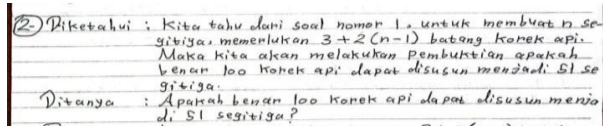 2. Diketahui : Kita tahu dari soal nomor 1, untuk membuat n se-
gitiga, memerlukan 3 + 2 (n-1) batang korek api.
Maka kita akan melakukan pembuktian apakah
benar 100 korek api dapat disusun menjadi 51 se
gitiga.
Ditanya : Apakah benar 100 korek api dapat disusun menja
di 51 segitiga?